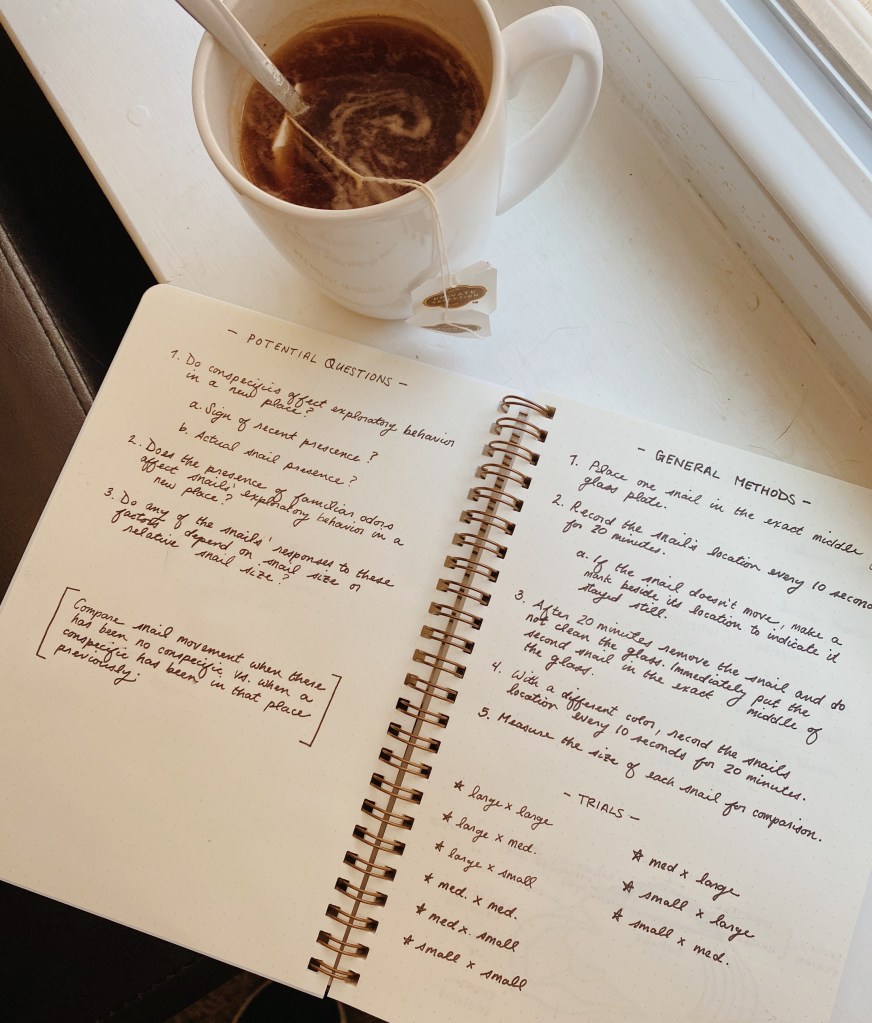 - POTENTIAL QUESTIONS -
1. Do conspecifics affect exploratory behavior
in a new place?
a. Sign of recent prescence?
b. Actual snail presence?
2. Does the presence of familiar odors
affect snails' exploratory behavior in a
new place?
3. Do any of the snails' responses to these
factors depend on snail size or
relative snail size?
[Compare snail movement when there
has been no conspecific vs. when a
conspecific has been in that place
previously.]
- GENERAL METHODS -
1. Place one snail in the exact middle
glass plate.
2. Record the snail's location every 10 second
for 20 minutes.
a. If the snail doesn't move, make a
mark beside its location to indicate it
stayed still.
3. After 20 minutes remove the snail and do
not clean the glass. Immediately put the
second snail in the exact middle of
the glass.
4. With a different color, record the snails
location every 10 seconds for 20 minutes.
5. Measure the size of each snail for comparison.
- TRIALS -
* large x large
* large x med.
* large x small
* med. x med.
* med x small
* small x small
* med x large
* small x large
* small x med.